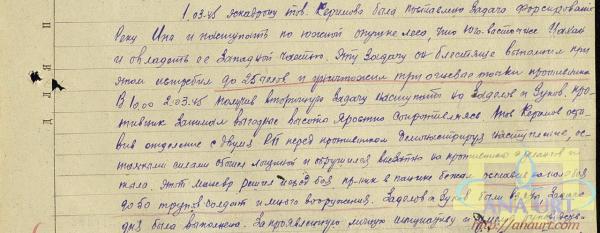 1.03.45 эскадрону тов. Керимова была поставлена задача форсировать
реку Ина и наступать по южной опушке леса, что юго-восточнее
и овладеть ее западной частью. Эту задачу он блестяще выполнил при
этом истребил до 25 немцев и уничтожил три огневые точки противника
В 10.00 2.03.45 получив вторичную задачу наступать на и про-
тивник занимая выгодные высоты яростно сопротивлялся. Тов Керимов оста-
вив отделение с двумя РП перед противником демонстрируя наступление, ос-
тальными силами обошел лощиной и обрушился внезапно на противника с флангов и
тыла. Этот маневр решил исход боя пр-ник в панике бежал оставив на поле боя
до 50 трупов солдат и много вооружения. и были взяты, задача
дня была выполнена. За проявленную личную инициативу
ANA URL
anaurl.com